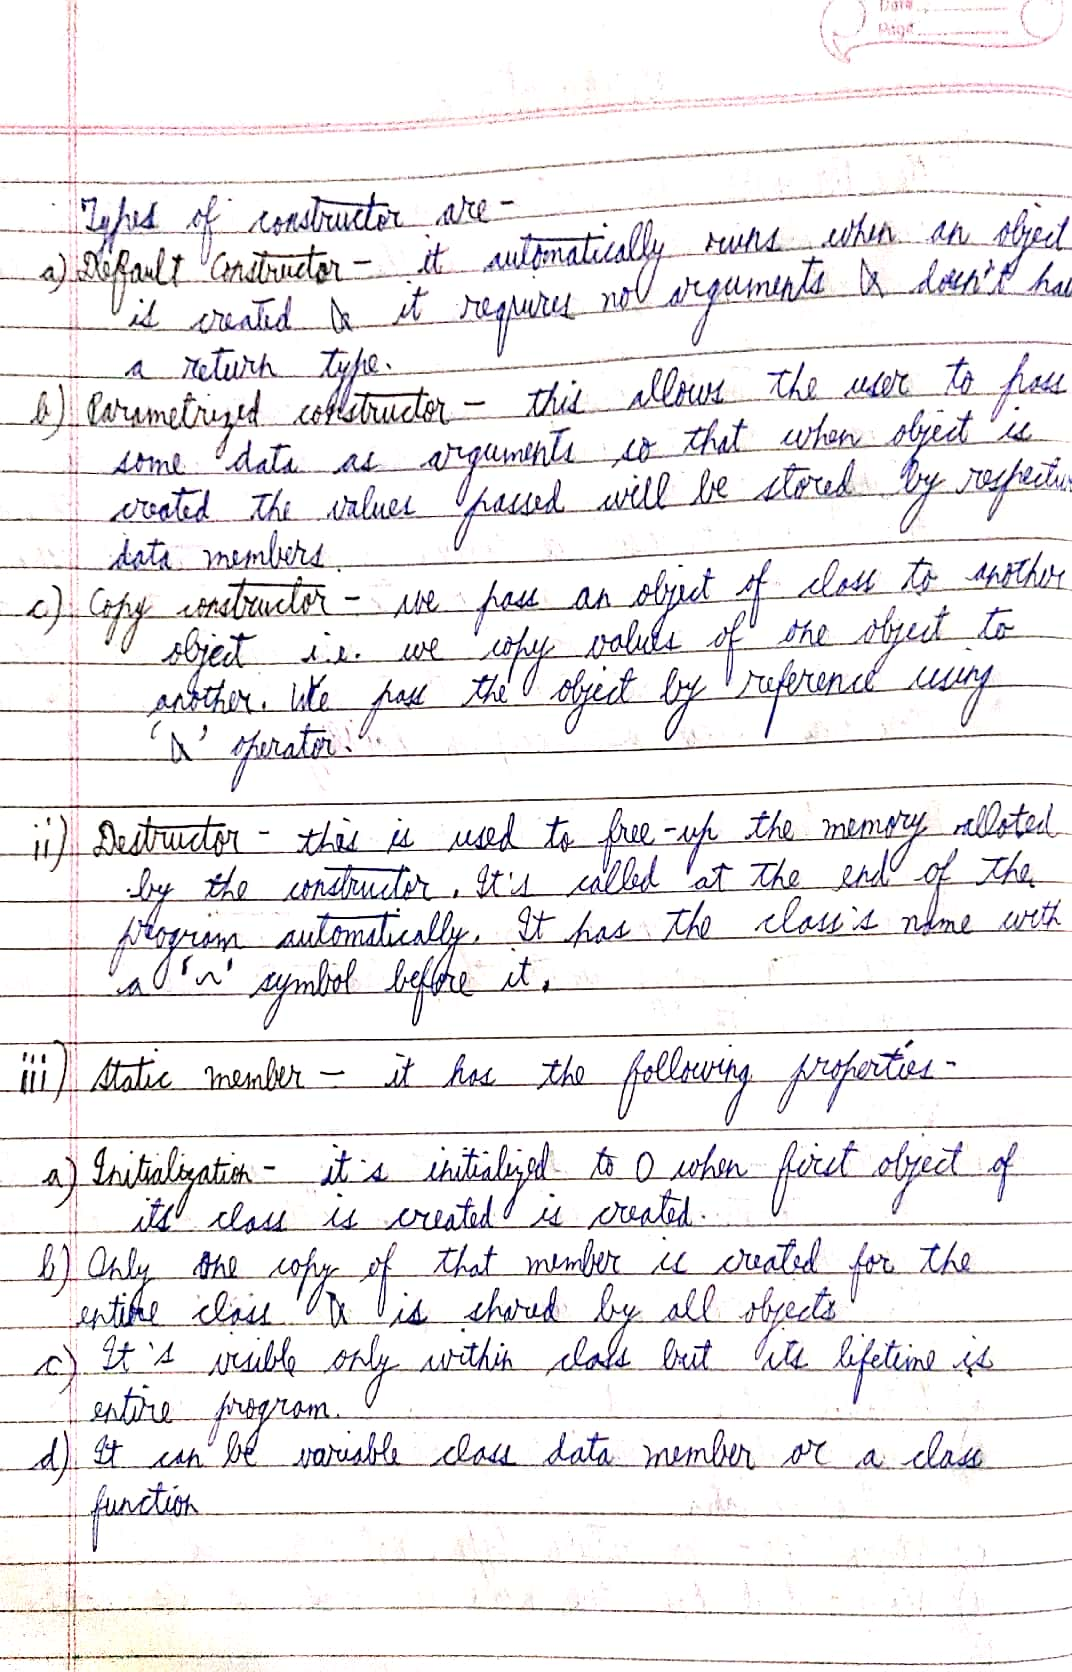 Date
Page
Types of constructor are -
a) Default Constructor - it automatically runs when an object
is created & it requires no arguments & doesn't ha
a return type.
b) Parametrized constructor - this allows the user to pass
some data as arguments so that when object is
created the values passed will be stored by respectiv
data members.
c) Copy constructor - we pass an object of class to another
object i.e. we copy values of one object to
another. We pass the object by reference using
'&' operator.
ii) Destructor - this is used to free-up the memory alloted
by the constructor. It's called at the end of the
program automatically. It has the class's name with
a '~' symbol before it.
iii) Static member - it has the following properties -
a) Initialization - it's initialized to 0 when first object of
its class is created is created.
b) Only one copy of that member is created for the
entire class & is shared by all objects
c) It's visible only within class but its lifetime is
entire program.
d) It can be variable class data member or a class
function